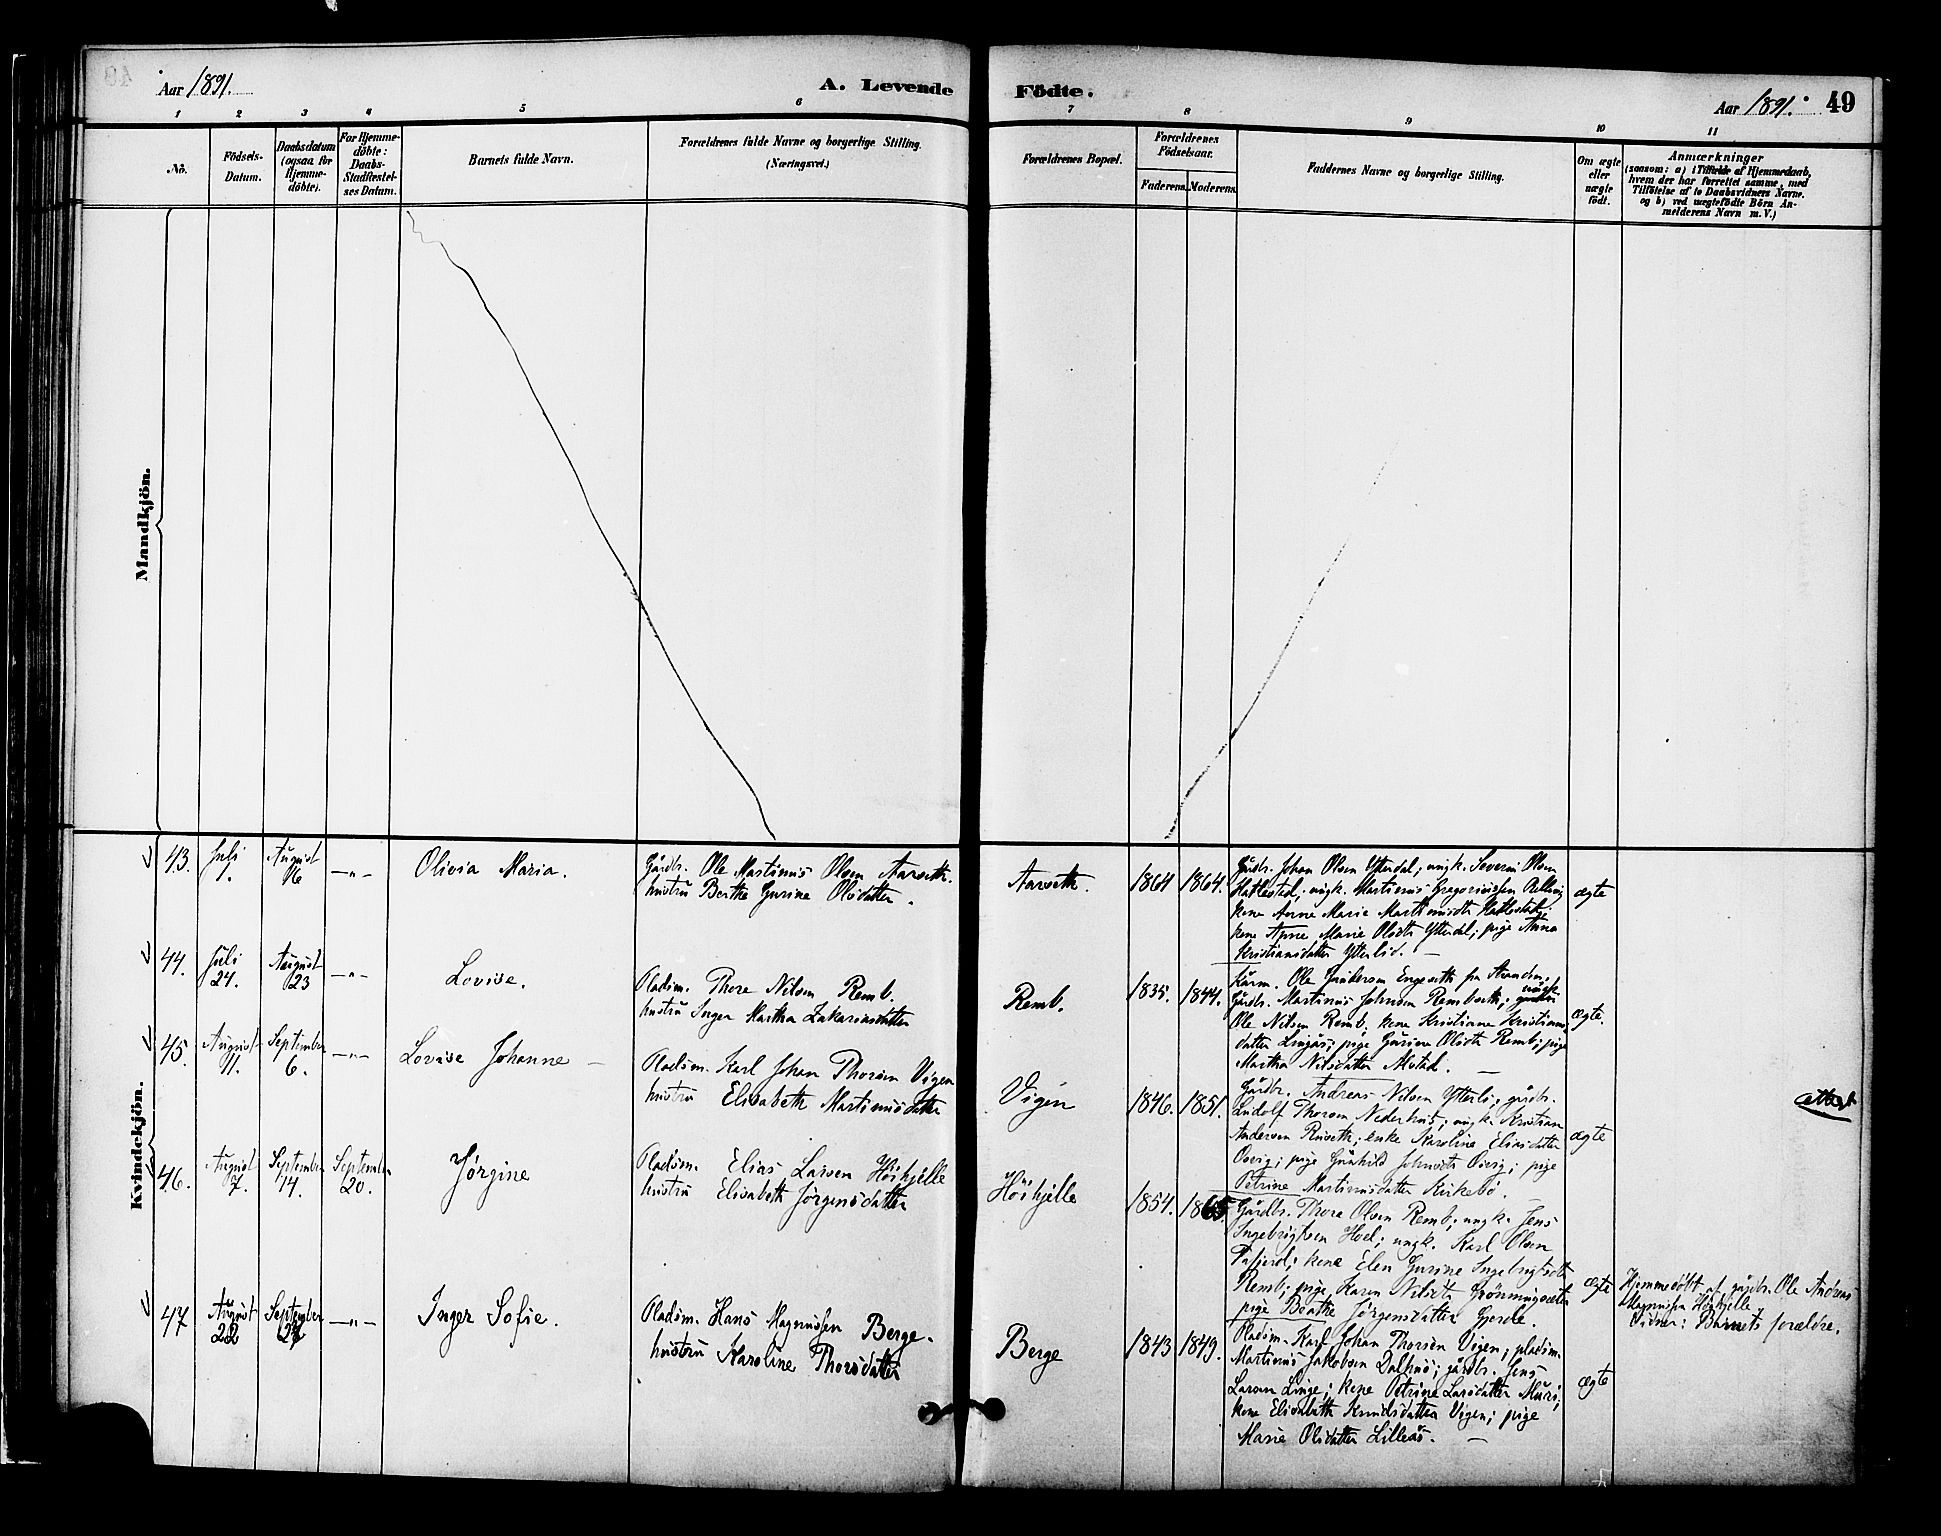 Aar 1891.
A. Levende Födte.
Aar 1891. 49
1 2 3 4 5 6 7 8 9 10 11
No.
Födsels-
Datum.
Daabsdatum
(ogsaa for
Hjemme-
döbte).
For Hjemme-
döbte:
Daabs-
Stadfæstel-
ses Datum.
Barnets fulde Navn.
Forældrenes fulde Navne og borgerlige Stilling.
(Næringsvei.)
Forældrenes Bopæl.
Forældrenes
Födselsaar.
Faderens. Moderens.
Faddernes Navne og borgerlige Stilling.
Om ægte
eller
uægte
födt.
Anmærkninger
(saasom: a) i Tilfælde af Hjemmedaab,
hvem der har forrettet samme, med
Tilföielse af to Daabsvidners Navne,
og b) ved uægtefödte Börn An-
melderens Navn m. V.)
Mandkjön.
Kvindekjön.
43. Juli August 16 —"— Olivia Maria.
Gårdbr. Ole Martinus Olsen Aarseth.
hustru Berthe Gurine Olsdatter.
Aarseth. 1864 1864.
Gårdbr. Johan Olsen Ytterdal; ungk. Severin Olsen
Hatlestad, ungk. Martinus Gregoriussen
kone Anne Marie Martinusdtr Hatlestad;
kone Anne Marie Olsdtr Ytterdal; pige Anna
Kristiansdatter Ytterlid. —
ægte
44. Juli 24. August 23 —"— Lovise.
Pladsm. Thore Nilsen Remb.
hustru Inger Martha Zakariasdatter
Remb. 1835. 1844.
Ole Engeseth fra Stranden.
Gårdbr. Martinus Johnsen Rembseth; ungk.
Ole Nilsen Remb, kone Kristiane Kristians-
datter Lingås; pige Gurine Olsdtr Remb; pige
Martha Nilsdatter Alstad. —
ægte.
45. August 11. September 6. —"— Lovise Johanne —
Pladsm. Karl Johan Thorsen Vigen
hustru Elisabeth Martinusdatter
Vigen 1846. 1851.
Gårdbr. Andreas Nilsen Ytterli; gårdbr.
Ludolf Thorsen Nederhus; ungk. Kristian
Andersen Ruseth; enke Karoline Eliasdatter
Overg; pige Gunhild Johnsdtr Overg; pige
Petrine Martinusdatter Kirkebö. —
ægte
attest
46. August 7. September 14. September 20. Jørgine
Pladsm. Elias Larsen Höshjelle
hustru Elisabeth Jørgensdatter
Höshjelle 1854. 1865.
Gårdbr. Thore Olsen Remb; ungk. Jens
Ingebrigtsen Hoel; ungk. Karl Olsen
Tafjord; kone Elen Gurine Ingebrigtsdtr
Remb; pige Karen Nilsdtr Grönningsæter
pige Berthe Jørgensdatter Gjerde.
ægte
Hjemmedöbt af gårdbr. Ole Andreas
Magnussen Höshjelle
Vidner: Barnets forældre.
47 August 22 September 27 —"— Inger Sofie.
Pladsm. Hans Magnussen Berge.
hustru Karoline Thorsdatter
Berge 1843 1849.
Pladsm. Karl Johan Thorsen Vigen; pladsm.
Martinus Jakobsen Dalhus; gårdbr. Jens
Larsen Linge; kone Petrine Larsdatter Muri;
kone Elisabeth Knudsdatter Vigen; pige
Marie Olsdatter Lilleås. —
ægte